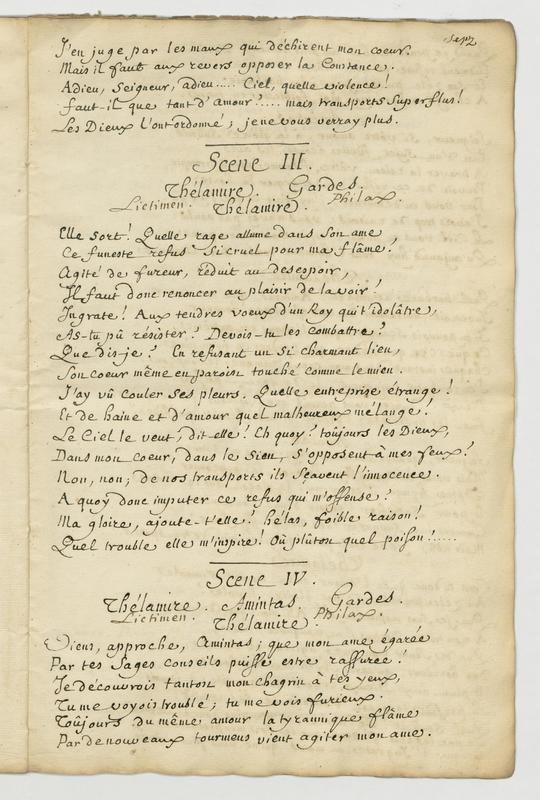 J'en juge par les maux qui déchirent mon coeur.
Mais il faut aux revers opposer la Constance.
Adieu, Seigneur, adieu..... Ciel, quelle violence!
faut-il que tant d'amour?..... mais transports Superflus!
Les Dieux l'ont ordonné; je ne vous verray plus.
Scene III.
Thélamire. Gardes.
Lictimen. Thélamire. Philax.
Elle sort! Quelle rage allume dans Son ame
Ce funeste refus Si cruel pour ma flâme!
Agité de fureur, réduit au desespoir,
Il faut donc renoncer au plaisir de la voir!
Ingrate! Aux tendres voeux d'un Roy qui t'idolâtre,
As-tu pû résister? Devois-tu les combattre?
Que dis-je? En refusant un Si charmant lien,
Son coeur même en paroist touché comme le mien.
J'ay vû couler Ses pleurs. Quelle entreprise étrange!
Et de haine et d'amour quel malheureux mélange!
Le Ciel le veut, dit elle! Eh quoy? toûjours les Dieux,
Dans mon coeur, dans le Sien, S'opposent à mes feux?
Non, non; de nos transports ils Sçavent l'innocence.
A quoy donc imputer ce refus qui m'offense?
Ma gloire, ajoute-t'elle! hélas, foible raison!
Quel trouble elle m'inspire! Où plûtost quel poison!.....
Scene IV.
Thélamire. Amintas. Gardes.
Lictimen. Thélamire. Philax.
Viens, approche, Amintas; que mon ame égarée
Par tes Sages conseils puisse estre rassurée!
Je découvrois tantost mon chagrin à tes yeux,
Tu me voyois troublé; tu me vois furieux.
Toûjours du même amour la tyrannique flâme
Par de nouveaux tourmens vient agiter mon ame.